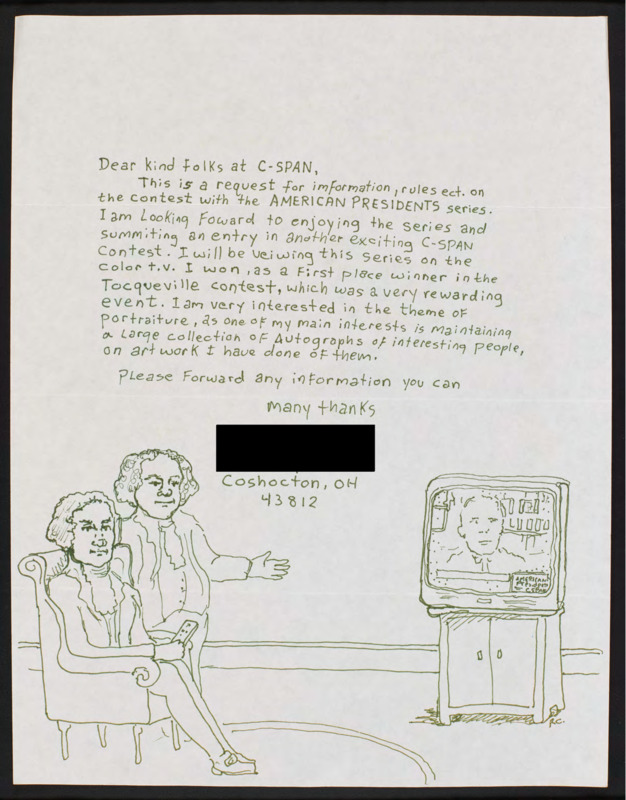 Dear kind folks at C-SPAN,
This is a request for imformation, rules ect. on
the contest with the AMERICAN PRESIDENTS series.
I am Looking Foward to enjoying the series and
summiting an entry in another exciting C-SPAN
Contest. I will be veiwing this series on the
color t.v. I won, as a First place winner in the
Tocqueville contest, which was a very rewarding
event. I am very interested in the theme of
Portraiture, as one of my main interests is maintaining
a Large collection of Autographs of interesting people,
on art work I have done of them.
Please Forward any information you can
many thanks
Coshocton, OH
43812
AMERICAN
R.C.